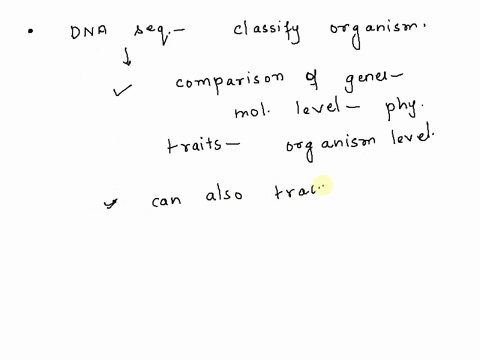 • DNA seq.- classify organism.
comparison of genes-
mol. level- phy.
traits- organism level.
can also trac